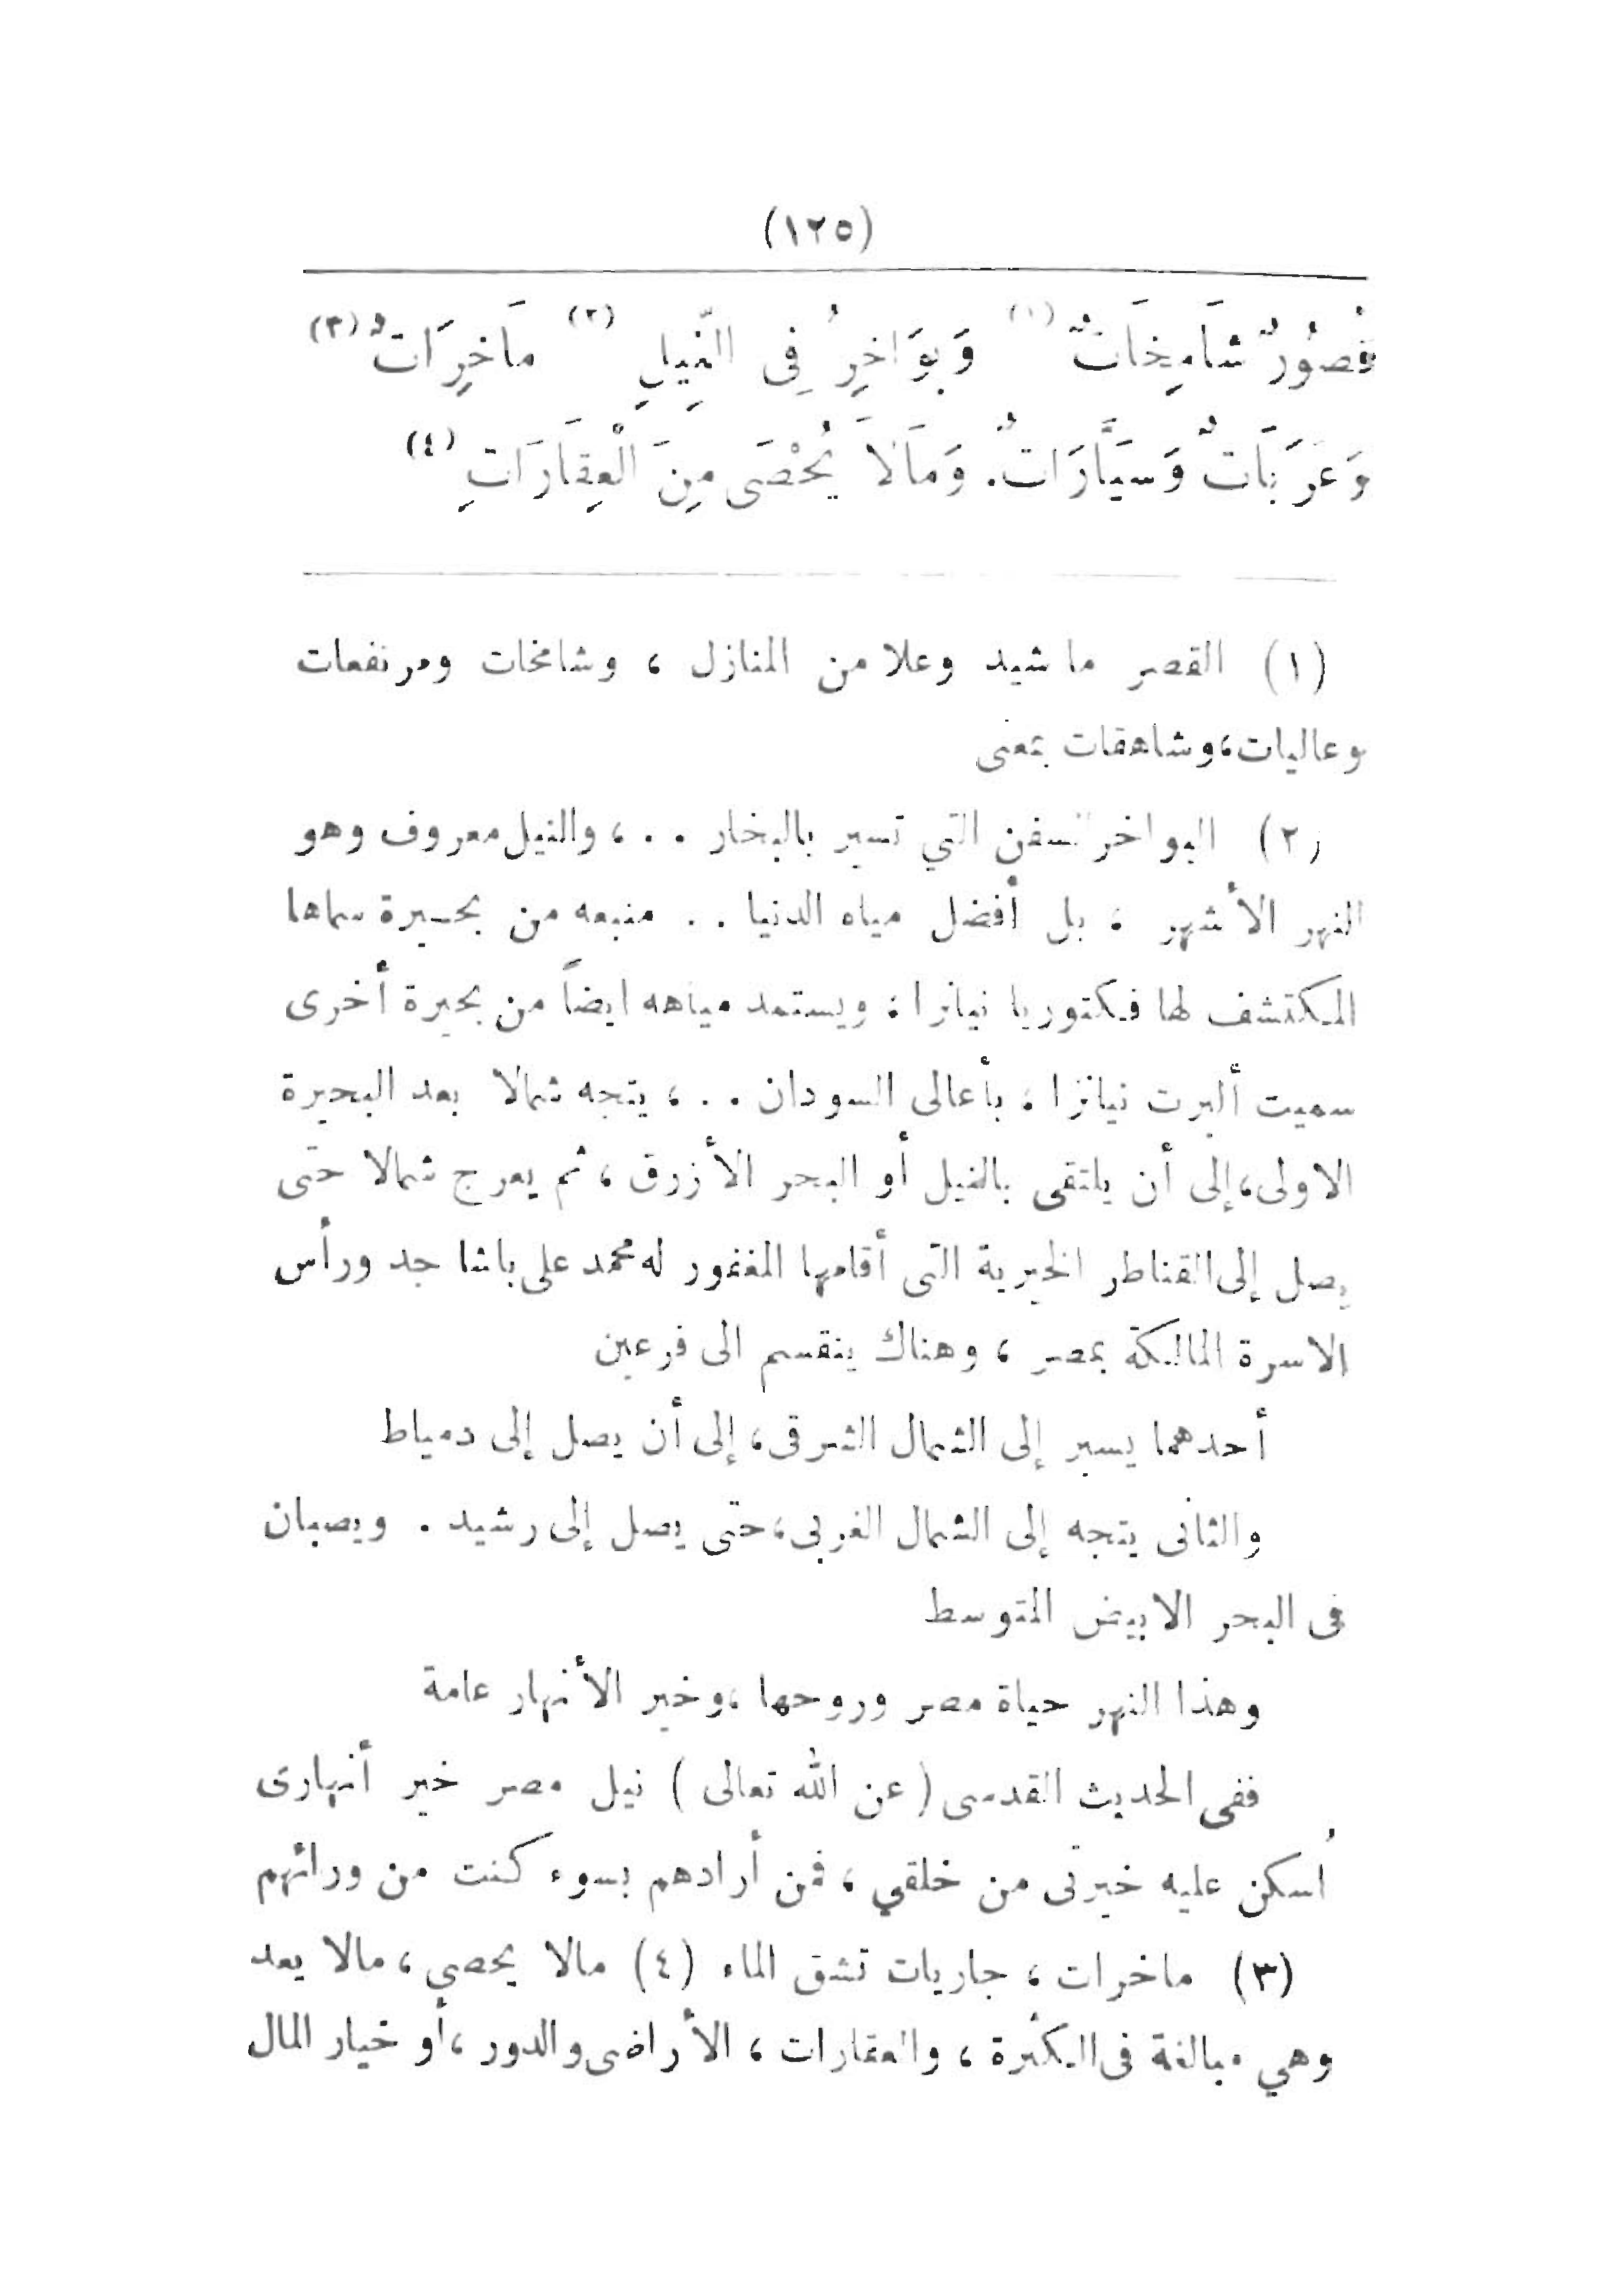 (١٢٥)
قُصُورٌ شَامِخَاتٌ (١) وَبَوَاخِرُ فِى النِّيلِ (٢) مَاخِرَاتٌ (٣)
وَعَرَبَاتٌ وَسَيَّارَاتٌ. وَمَالاَ يُحْصَى مِنَ الْعِقَارَاتِ (٤)
(١) القصر ما شيد وعلا من المنازل ، وشامخات ومرتفعات
وعاليات، وشاهقات بمعنى
(٢) البواخر السفن التي تسير بالبخار . . ، والنيل معروف وهو
النهر الأشهر ، بل أفضل مياه الدنيا . . منبعه من بحيرة سماها
المكتشف لها فكتوريا نيانزا ، ويستمد مياهه ايضاً من بحيرة أخرى
سميت ألبرت نيانزا ، بأعالى السودان . . ، يتجه شمالا بعد البحيرة
الاولى، إلى أن يلتقى بالنيل أو البحر الأزرق ، ثم يعرج شمالا حتى
يصل إلى القناطر الخيرية التى أقامها المغفور له محمد على باشا جد ورأس
الاسرة المالكة بمصر ، وهناك ينقسم الى فرعين
أحدهما يسير إلى الشمال الشرقى، إلى أن يصل إلى دمياط
والثانى يتجه إلى الشمال الغربى، حتى يصل إلى رشيد . ويصبان
فى البحر الابيض المتوسط
وهذا النهر حياة مصر وروحها ،وخير الأنهار عامة
ففى الحديث القدسى ( عن الله تعالى ) نيل مصر خير أنهارى
أُسكن عليه خيرتى من خلقي ، فمن أرادهم بسوء كنت من ورائهم
(٣) ماخرات ، جاريات تشق الماء (٤) مالا يحصي ، مالا يعد
وهي مبالغة فى الكثرة ، والعقارات ، الأراضى والدور ، أو خيار المال